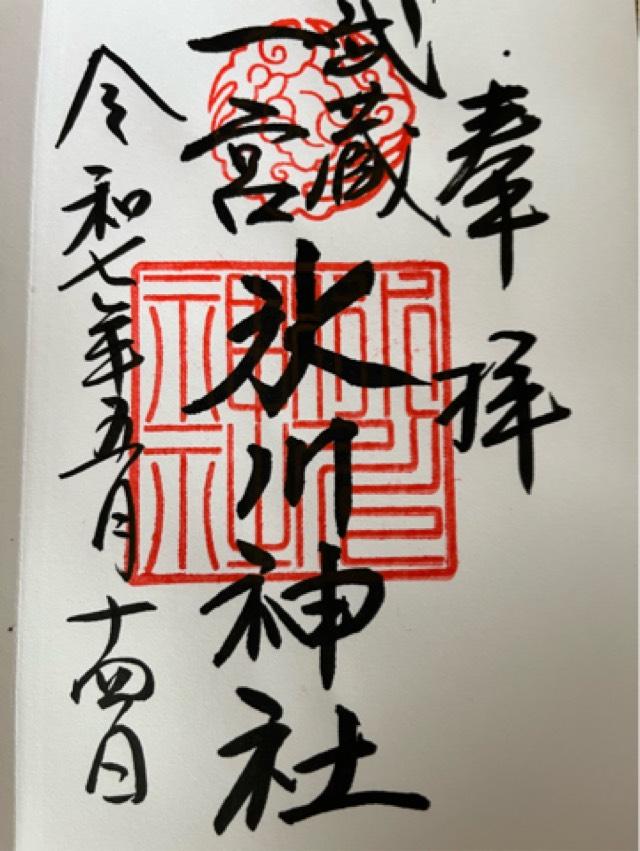 奉拝
武蔵
一宮
氷川神社
令和七年五月十四日